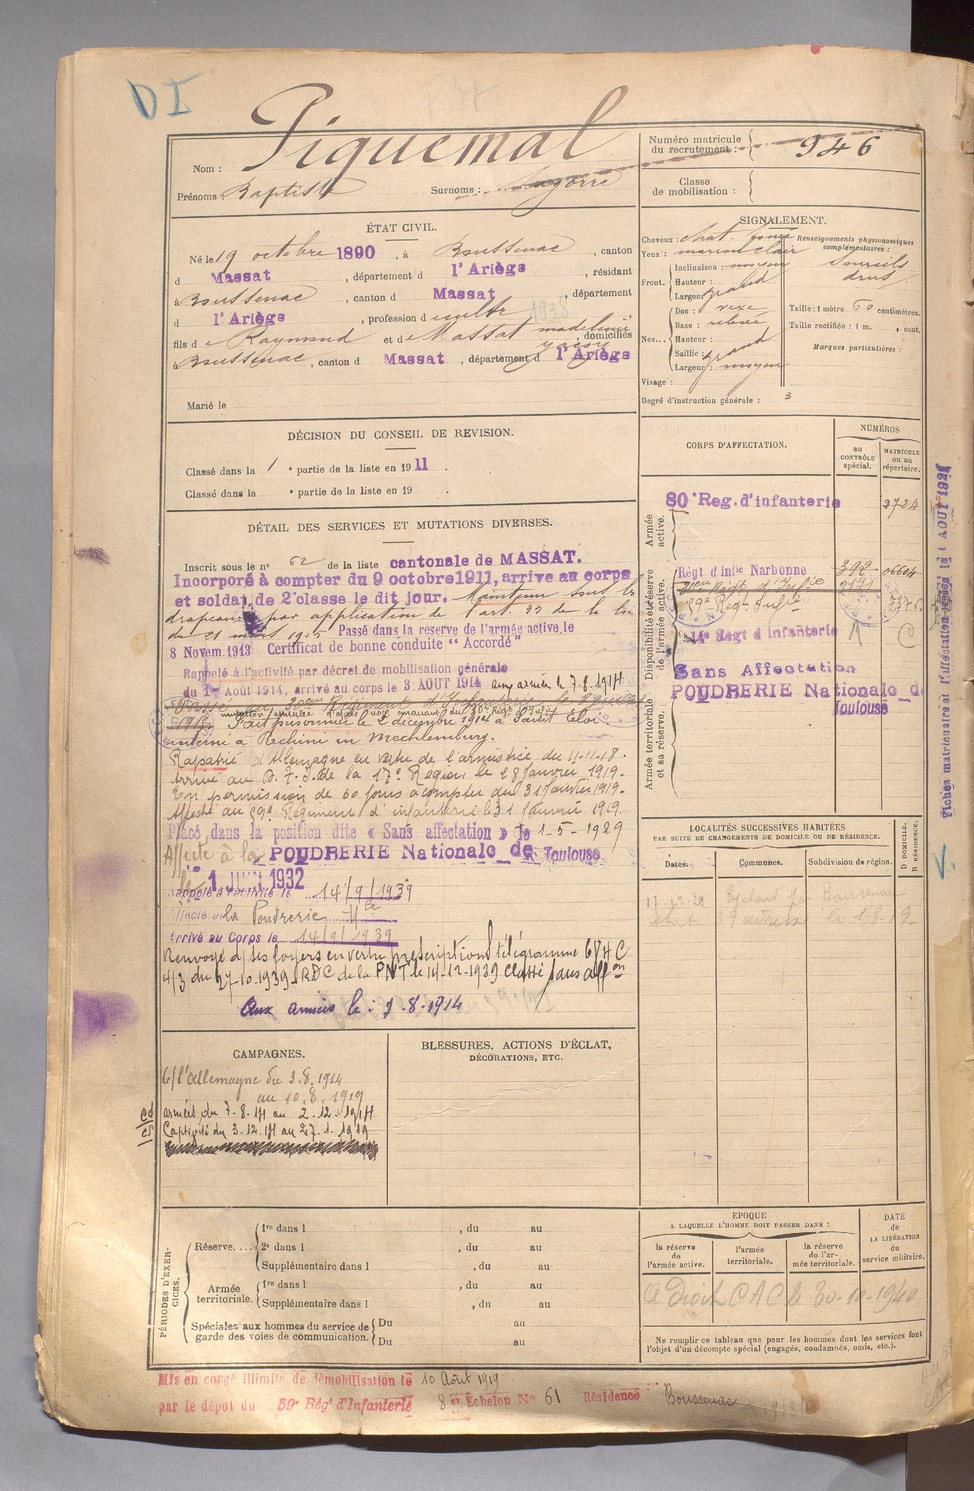 DI
Nom : Piquemal
Prénoms : Baptiste Surnoms :
Numéro matricule du recrutement : 946
Classe de mobilisation :
ÉTAT CIVIL.
Né le 19 octobre 1890, à Boussenac, canton
d Massat, département d l'Ariège, résidant
à Boussenac, canton d Massat, département
d l'Ariège, profession d
fils d Raymond et de Massat madeleine, domiciliés
à Boussenac, canton d Massat, département d l'Ariège
Marié le
SIGNALEMENT.
Cheveux : chat. Renseignements physionomiques complémentaires :
Yeux : marron clair Sourcils
drus
Front. Inclinaison : moyen
Hauteur :
Largeur grand
Nez... Dos : vexe Taille : 1 mètre 60 centimètres.
Base : relevée Taille rectifiée : 1 m. , cent.
Hauteur :
Saillie : grand Marques particulières :
Largeur : moyen
Visage :
Degré d'instruction générale : 3
DÉCISION DU CONSEIL DE REVISION.
Classé dans la 1 e partie de la liste en 1911.
Classé dans la e partie de la liste en 19 .
DÉTAIL DES SERVICES ET MUTATIONS DIVERSES.
Inscrit sous le n° 62 de la liste cantonale de MASSAT.
Incorporé à compter du 9 octobre 1911, arrive au corps
et soldat de 2e classe le dit jour. Maintenu sous les
drapeaux par application de l'art 33 de la loi
du 21 mars 1905 Passé dans la reserve de l'armée active le
8 Novem.1913 Certificat de bonne conduite "Accordé"
Rappelé à l'activité par décret de mobilisation générale
du 1er Août 1914, arrivé au corps le 3 AOUT 1914 aux armées le 7.8.1914
Fait prisonnier le 2 décembre 1914 à Saint Eloi
interné à Rechlin in Mecklemburg.
Rapatrié d'Allemagne en vertu de l'armistice du 11.11.18.
Arrivé au D. I. de la 17e Région le 28 Janvier 1919.
En permission de 60 jours à compter du 31 Janvier 1919.
Affecté au 59e Régiment d'infanterie le 31 Janvier 1919.
Placé dans la position dite « Sans affectation » le 1-5-1929
Affecté à la POUDRERIE Nationale de Toulouse
le 1 JUIN 1932
Rappelé à l'activité le 14/9/1939
Affecté à la Poudrerie Nle
Arrivé au Corps le 14/9/1939
Renvoyé d/ses foyers en vertu prescriptions télégramme 6VHC
4/3 du 27-10-1939. RDC de la PNT le 14-12-1939 Classé sans affon
Aux armées le : 7-8-1914
CORPS D'AFFECTATION.
NUMÉROS
au CONTRÔLE spécial.
MATRICULE ou au répertoire.
Armée active.
80e Reg. d'infanterie 3724
Disponibilité et réserve de l'armée active.
Régt d'infie Narbonne 392 06604
59e Régt Infie
14e Regt d infanterie
Armée territoriale et sa réserve.
Sans Affectation
POUDRERIE Nationale de
Toulouse
LOCALITÉS SUCCESSIVES HABITÉES
PAR SUITE DE CHANGEMENTS DE DOMICILE OU DE RÉSIDENCE.
Dates. Communes. Subdivision de région.
D DOMICILE.
R RÉSIDENCE.
CAMPAGNES.
C/ l'Allemagne du 3.8.1914
au 10.8.1919
armées du 7-8-14 au 2.12.1914
Captivité du 3.12.14 au 27.1.1919
BLESSURES, ACTIONS D'ÉCLAT,
DÉCORATIONS, ETC.
PÉRIODES D'EXERCICES.
Réserve.... 1re dans l , du au
2e dans l , du au
Supplémentaire dans l , du au
Armée territoriale. 1re dans l , du au
Supplémentaire dans l , du au
Spéciales aux hommes du service de garde des voies de communication. Du au
Du au
EPOQUE
A LAQUELLE L'HOMME DOIT PASSER DANS :
la réserve de l'armée active.
l'armée territoriale.
la réserve de l'armée territoriale.
DATE de LA LIBÉRATION du service militaire.
a Droit C A C le 30-10-1940
Ne remplir ce tableau que pour les hommes dont les services font
l'objet d'un décompte spécial (engagés, condamnés, omis, etc.).
Mis en congé illimité de démobilisation le 10 Août 1919
par le dépot du 59e Rég' d'Infanterie 8 er Echelon No 61 Résidence Boussenac